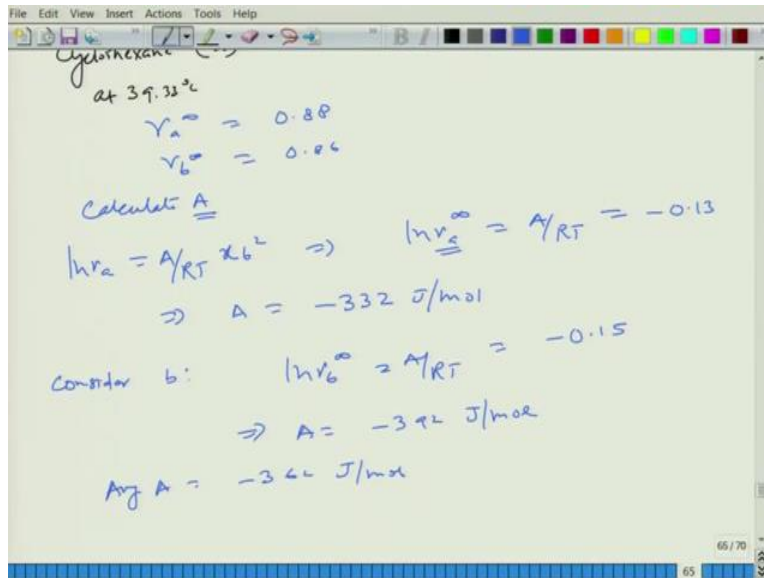 File Edit View Insert Actions Tools Help
Cyclohexane
at 39.33°C
γa^∞ = 0.88
γb^∞ = 0.86
Calculate A
lnγa = A/RT xb² ⇒ lnγa^∞ = A/RT = -0.13
⇒ A = -332 J/mol
Consider b: lnγb^∞ = A/RT = -0.15
⇒ A = -392 J/mol
Avg A = -362 J/mol
65/70
65